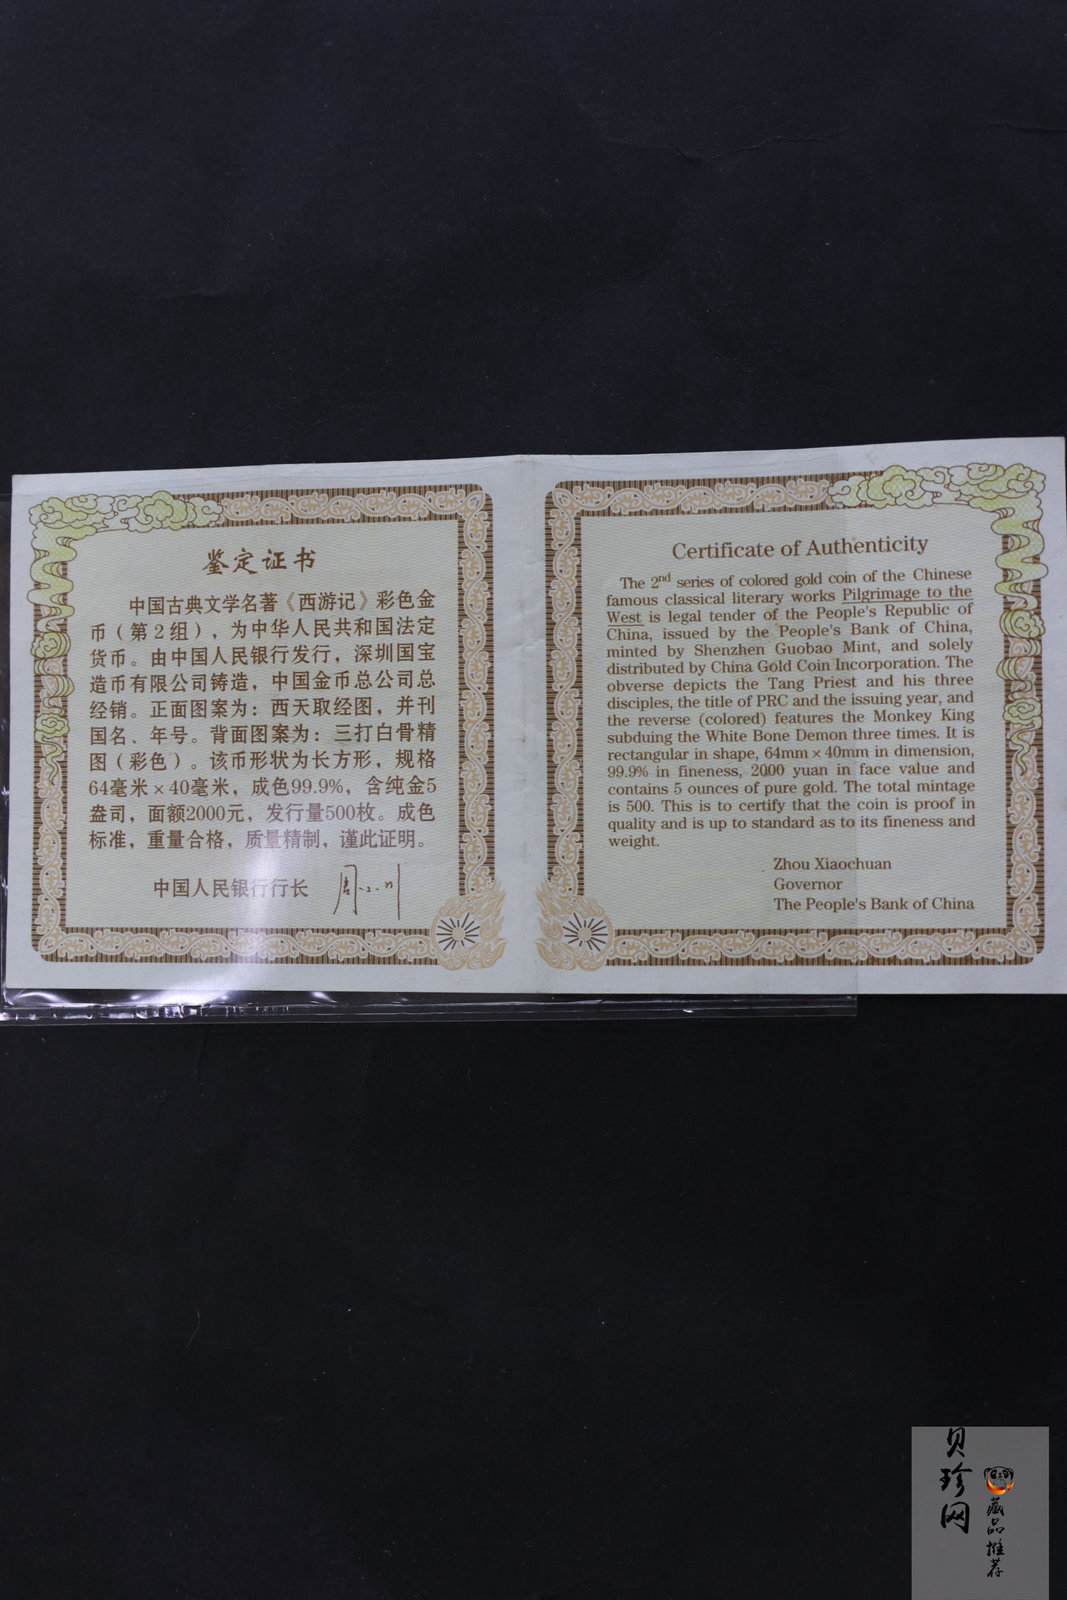 鉴定证书
中国古典文学名著《西游记》彩色金
币（第2组），为中华人民共和国法定
货币。由中国人民银行发行，深圳国宝
造币有限公司铸造，中国金币总公司总
经销。正面图案为：西天取经图，并刊
国名、年号。背面图案为：三打白骨精
图（彩色）。该币形状为长方形，规格
64毫米×40毫米，成色99.9%，含纯金5
盎司，面额2000元，发行量500枚。成色
标准，重量合格，质量精制，谨此证明。
中国人民银行行长 周小川
Certificate of Authenticity
The 2nd series of colored gold coin of the Chinese
famous classical literary works Pilgrimage to the
West is legal tender of the People's Republic of
China, issued by the People's Bank of China,
minted by Shenzhen Guobao Mint, and solely
distributed by China Gold Coin Incorporation. The
obverse depicts the Tang Priest and his three
disciples, the title of PRC and the issuing year, and
the reverse (colored) features the Monkey King
subduing the White Bone Demon three times. It is
rectangular in shape, 64mm×40mm in dimension,
99.9% in fineness, 2000 yuan in face value and
contains 5 ounces of pure gold. The total mintage
is 500. This is to certify that the coin is proof in
quality and is up to standard as to its fineness and
weight.
Zhou Xiaochuan
Governor
The People's Bank of China
贝珍网
藏品推荐